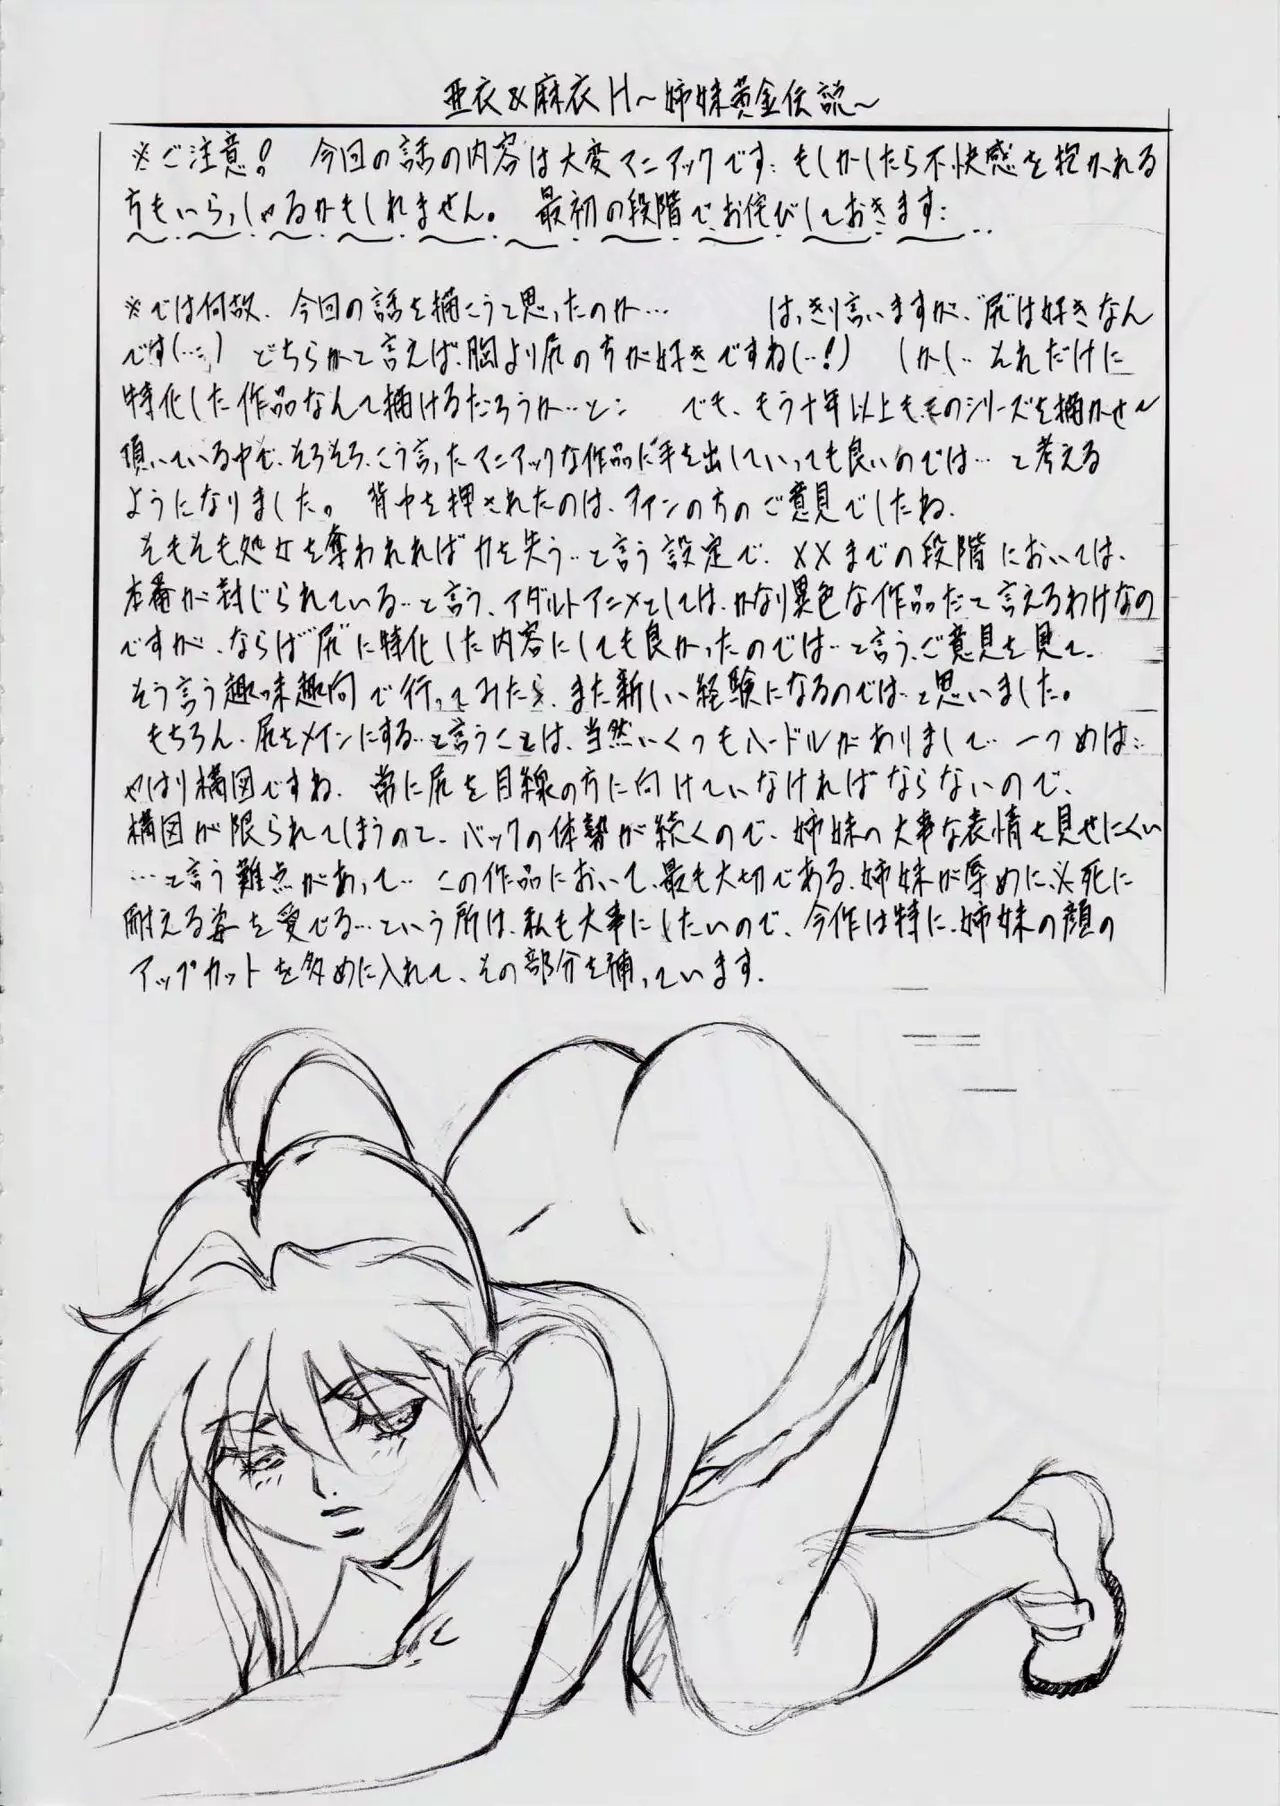 亜衣&麻衣H～姉妹黄金伝説～
※ご注意! 今回の話の内容は大変マニアックです… もしかしたら不快感を抱かれる
方もいらっしゃるかもしれません。 最初の段階でお侘びしておきます…
※では何故、今回の話を描こうと思ったのか… はっきり言いますが、”尻”は好きなん
です(…) どちらかと言えば、胸より尻の方が好きですね(…!) しかし… それだけに
特化した作品なんて描けるだろうか…と… でも、もう十年以上もこのシリーズを描かせ～
頂いている中で、そろそろ、こう言ったマニアックな作品に手を出していっても良いのでは… と考える
ようになりました。 背中を押されたのは、ファンの方のご意見でしたね。
そもそも処女を奪われれば力を失う…と言う設定で、××までの段階においては、
本番が封じられている…と言う、アダルトアニメとしては、かなり異色な作品だと言えるわけなの
ですが、ならば”尻”に特化した内容にしても良かったのでは…と言う、ご意見を見て、
そう言う趣味趣向で行ってみたら、また新しい経験になるのでは…と思いました。
もちろん、尻をメインにする…と言うことは、当然いくつもハードルがありまして… 一つめは…
やはり構図ですね。 常に尻を目線の方に向けていなければならないので、
構図が限られてしまうのと、バックの体勢が続くので、姉妹の大事な表情を見せにくい
…と言う難点があって… この作品において、最も大切である、姉妹が辱めに、必死に
耐える姿を愛でる…という所は、私も大事にしたいので、今作は特に、姉妹の顔の
アップカットを多めに入れて、その部分を補っています。